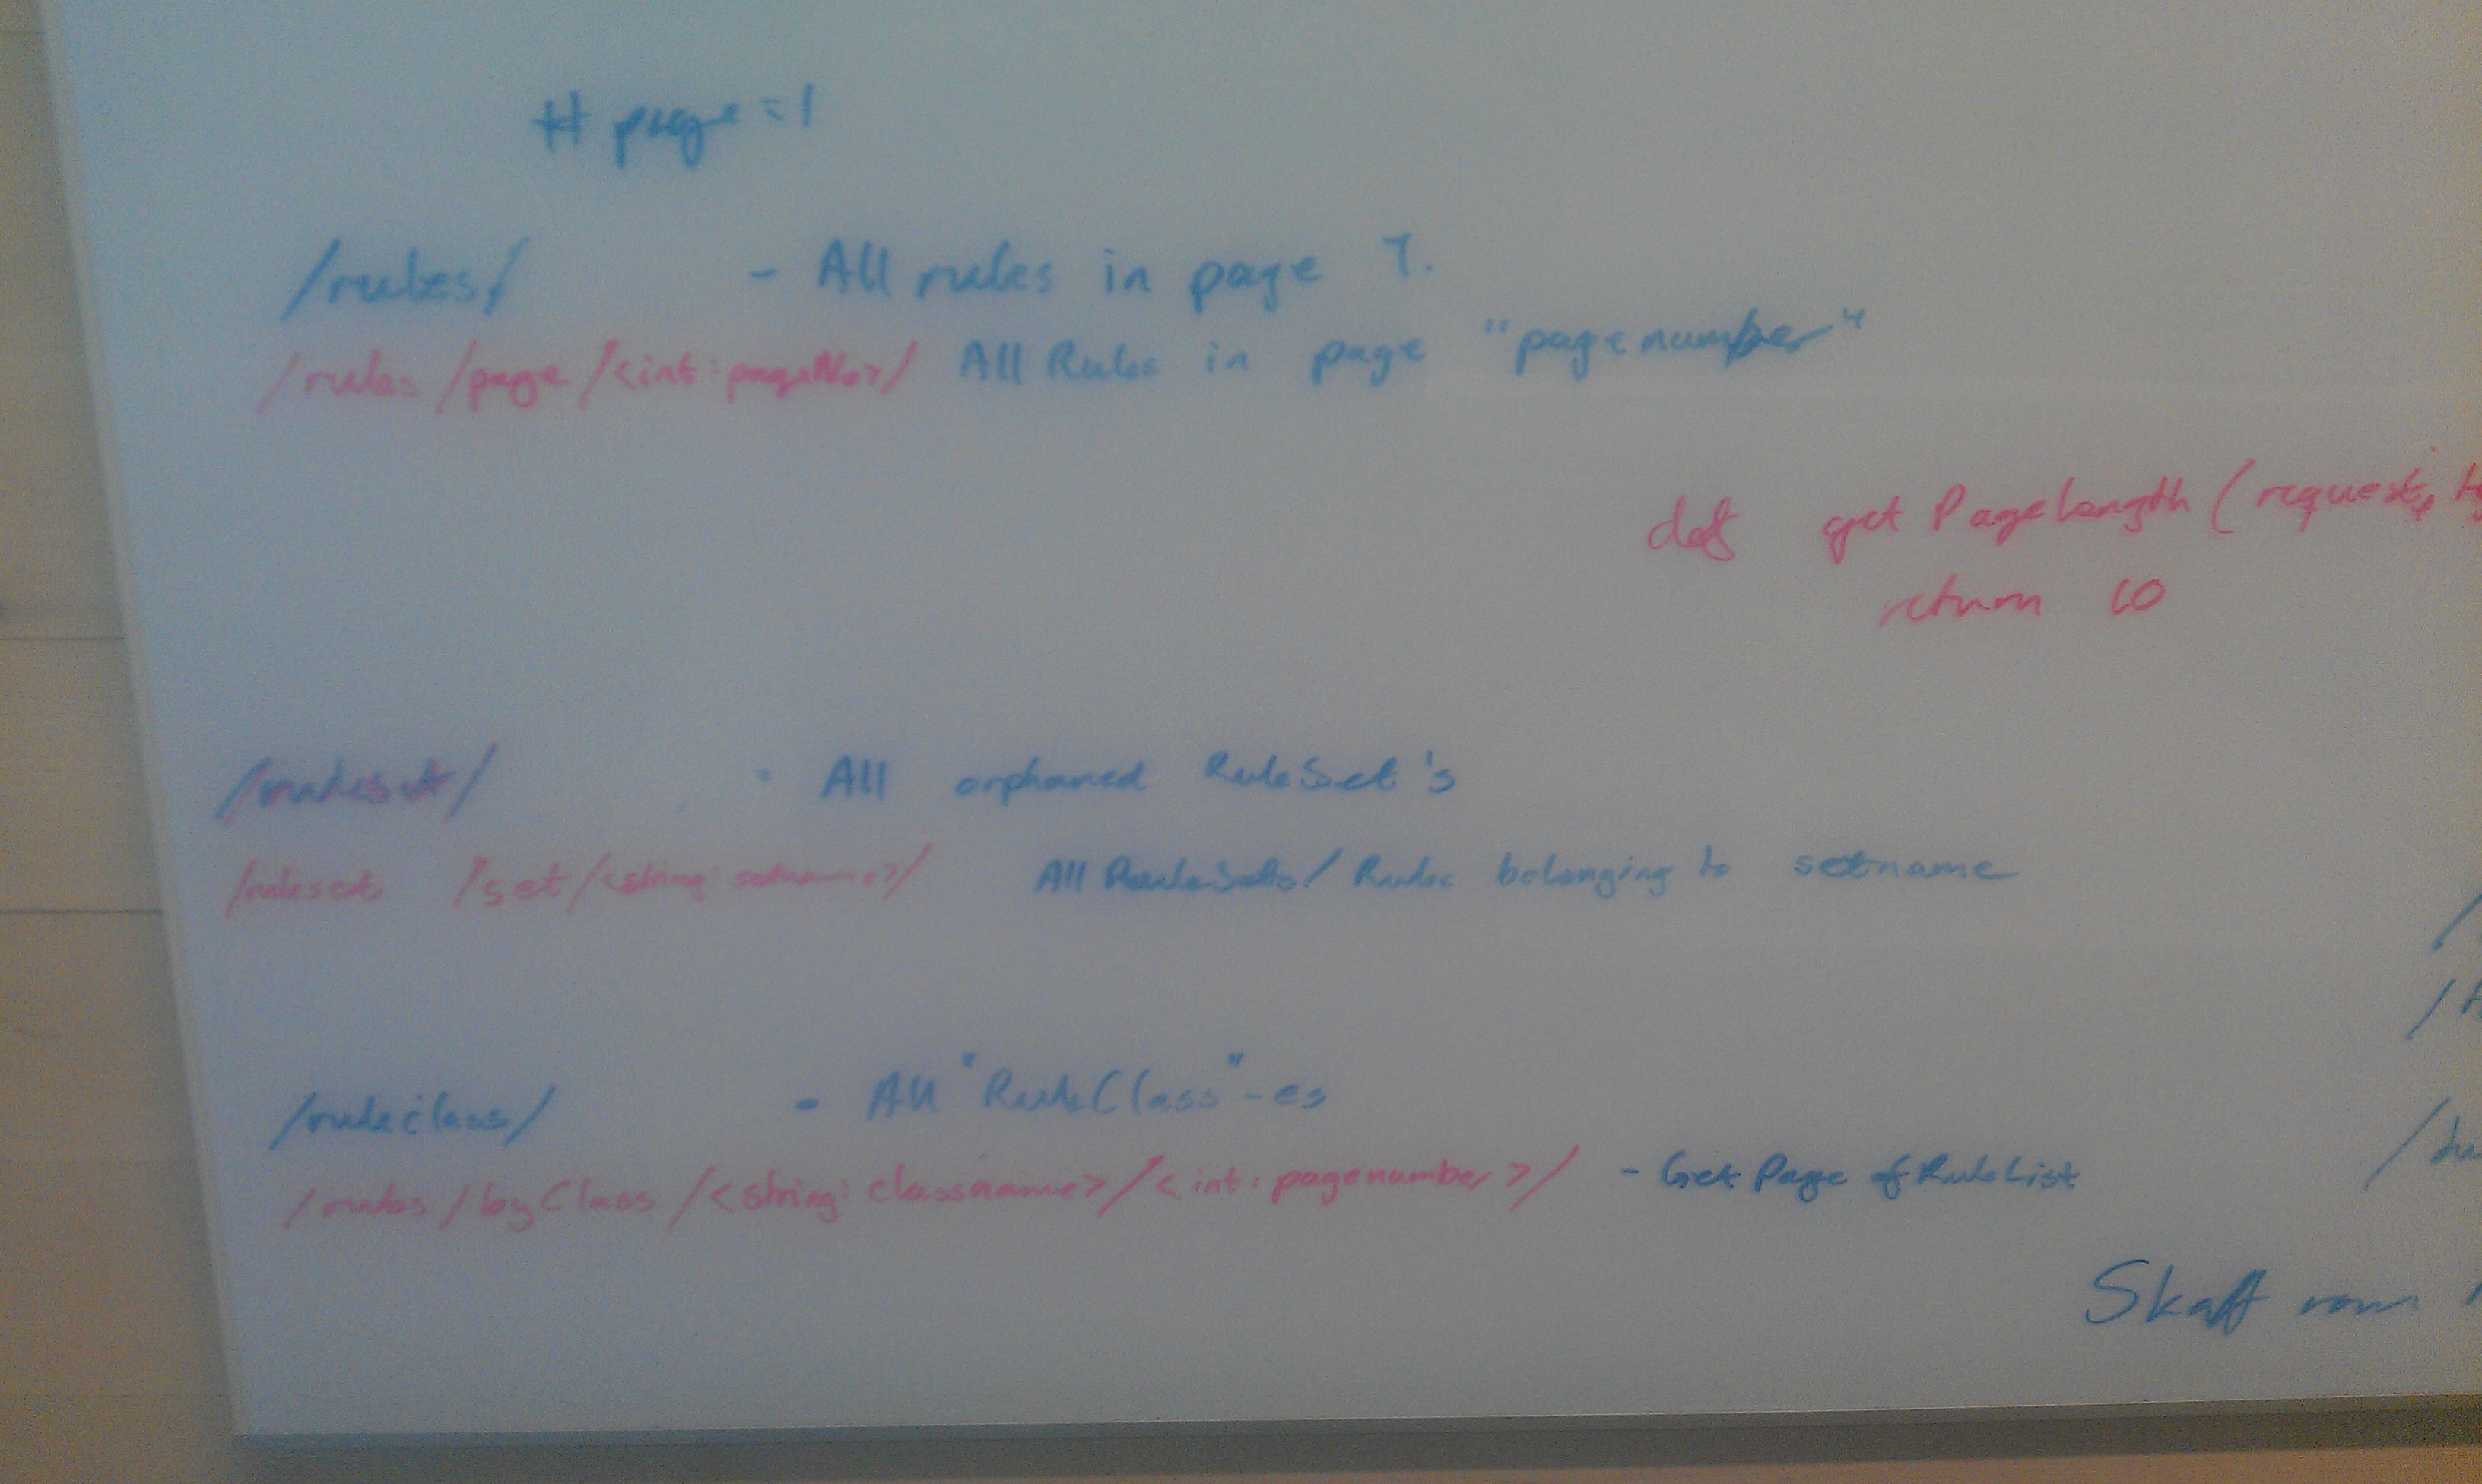 # page = 1
/rules/ - All rules in page 1.
/rules/page/<int:pageNo>/ All Rules in page "pagenumber"
def getPageLength(request,
return 10
/ruleset/ - All orphaned RuleSet's
/ruleset /set/<string:setname>/ All RuleSets/Rules belonging to setname
/ruleclass/ - All "RuleClass"-es
/rules/byClass/<string:classname>/<int:pagenumber>/ - Get Page of RuleList
Skaff rom